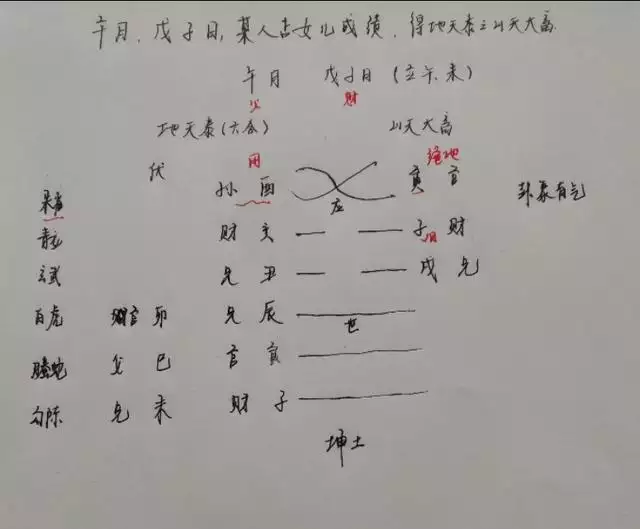 午月、戊子日,某人占女儿成绩,得地天泰之山天大畜
午月 戊子日(空午未)
父 财
地天泰(六合) 山天大畜
伏 用 绝地
朱雀 孙 酉 寅 官 卦象有气
应
青龙 财 亥 子 财
玄武 兄 丑 戌 兄
白虎 官 卯 兄 辰
世
螣蛇 父 巳 官 寅
勾陈 兄 未 财 子
坤土